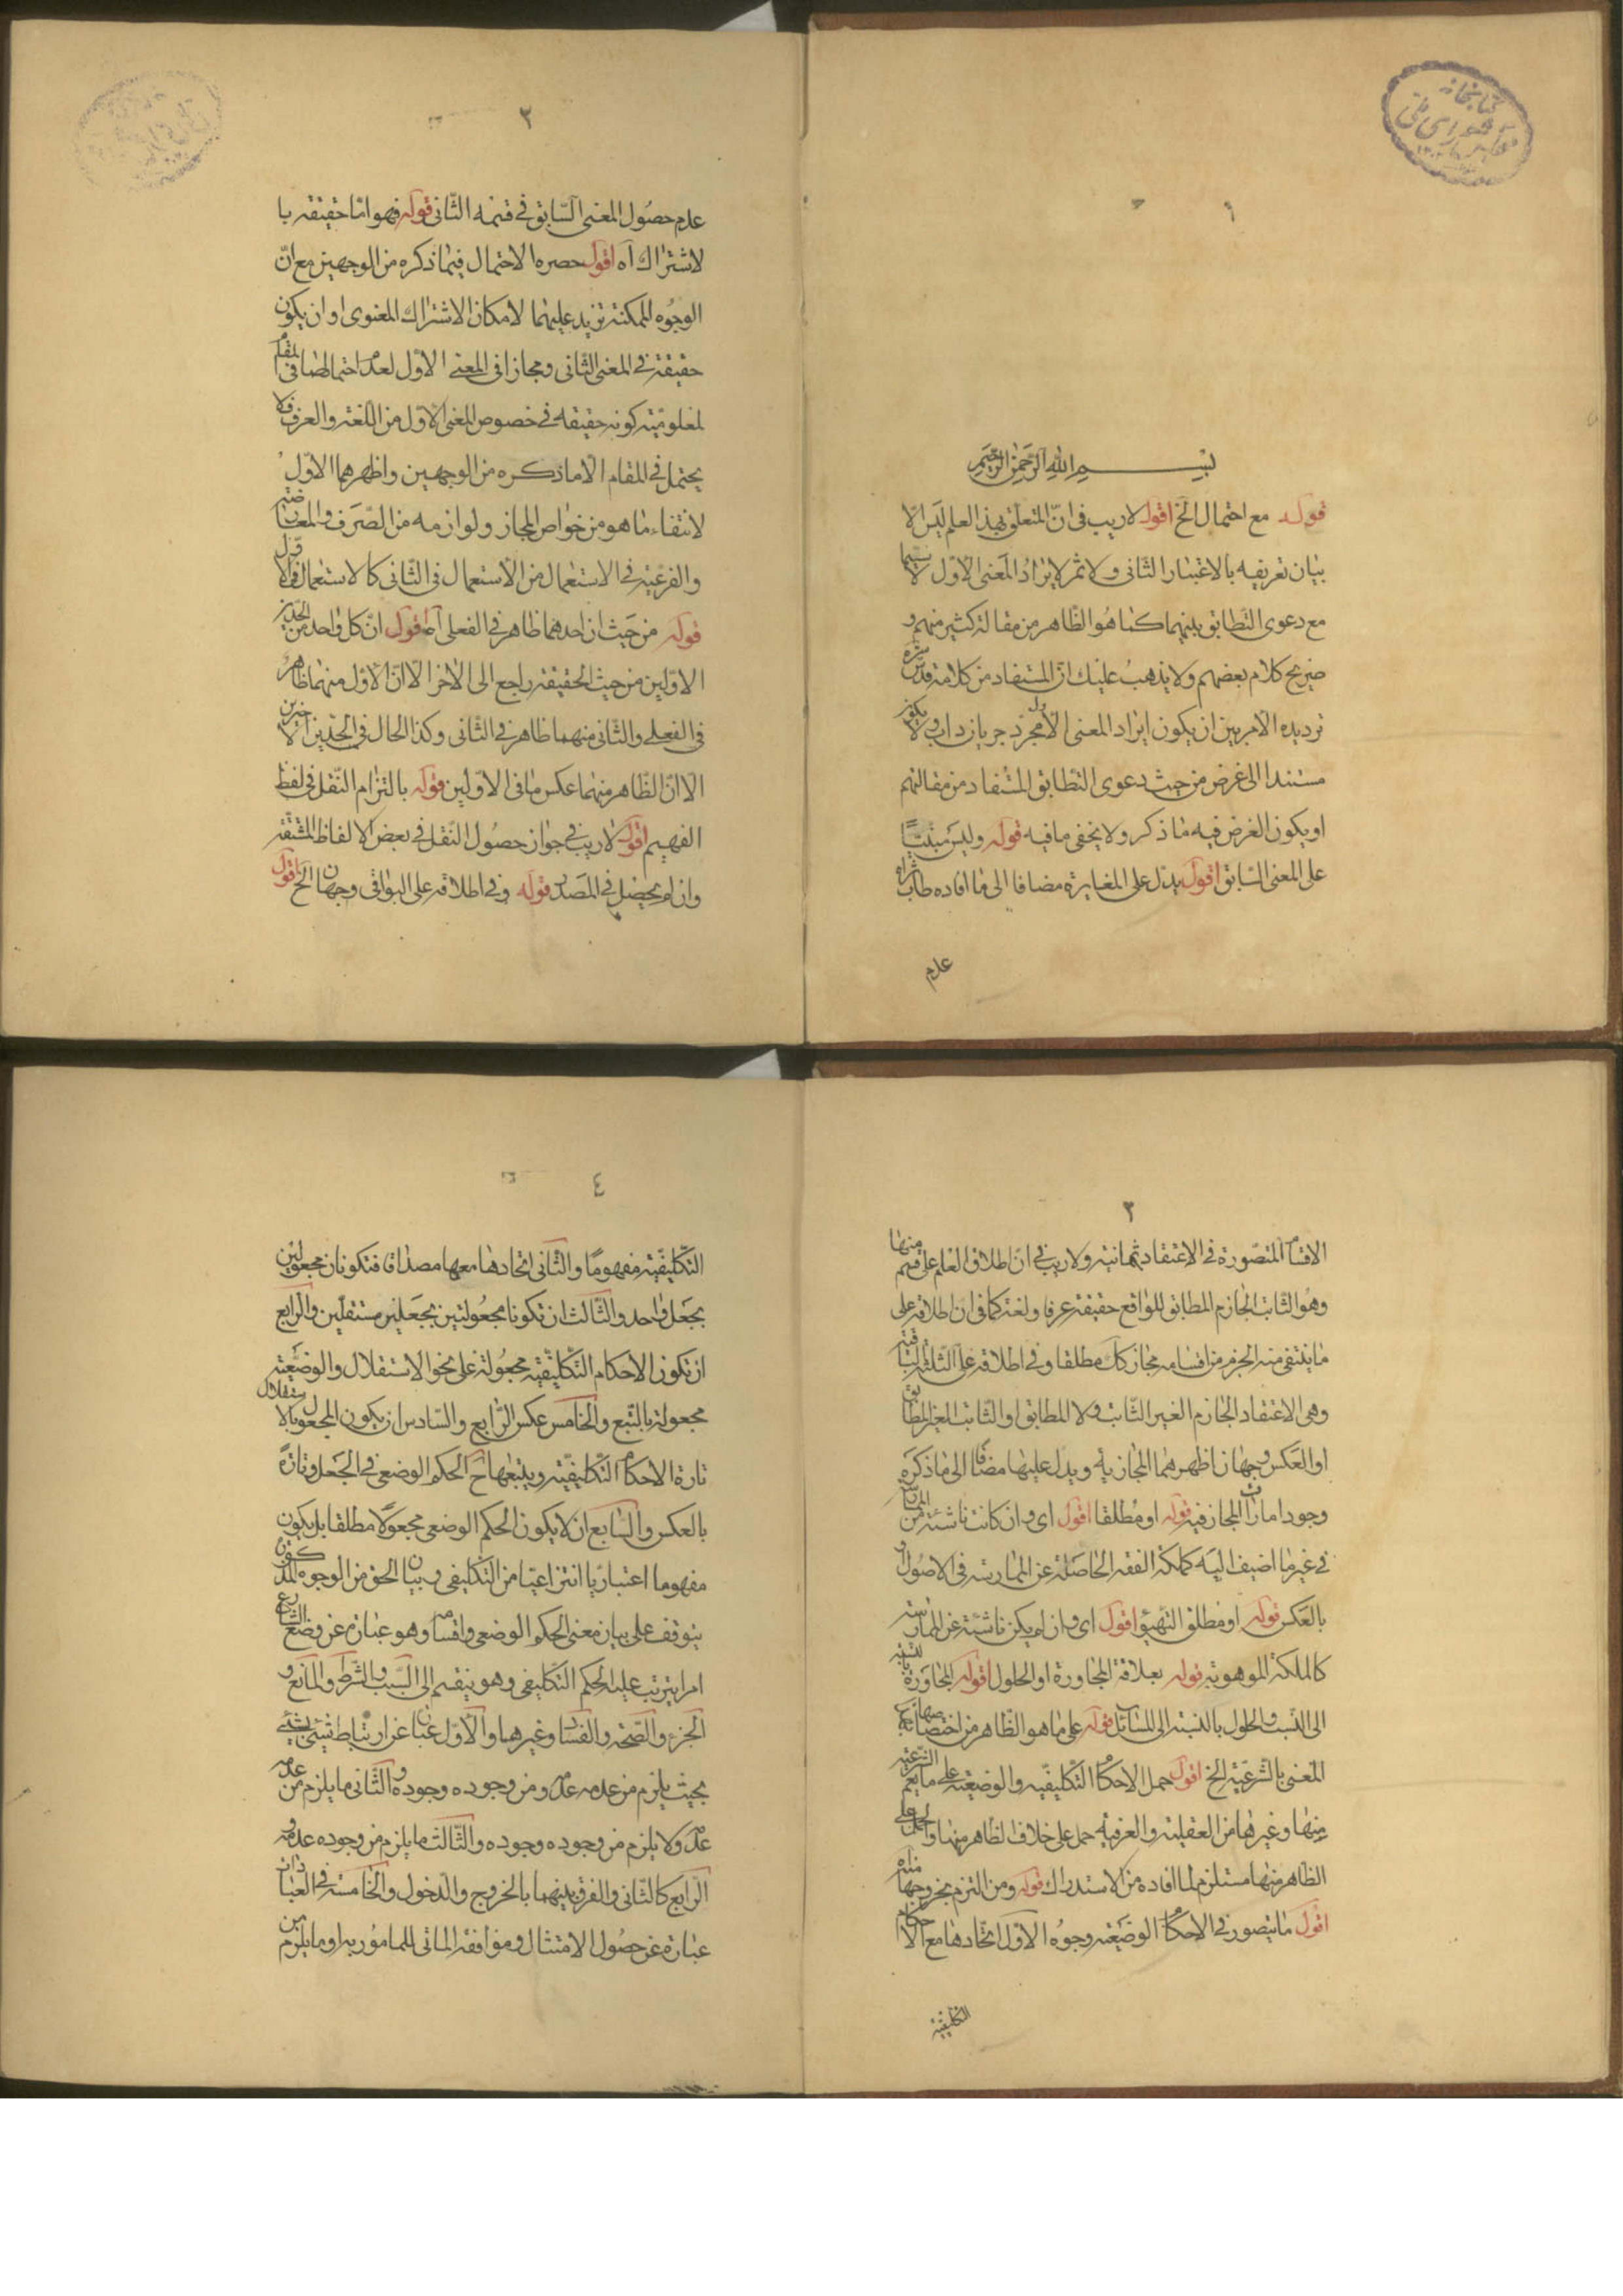 كتابخانه
مجلس شورای ملی
١
بسم الله الرحمن الرحيم
قوله مع احتمال الخ اقول لا ريب فى انّ المتعلق بهذا العلم ليس الّا
بيان تعريفيه بالاعتبار الثانى ولا ثمر لايراد المعنى الاول لا سيّما
مع دعوى التطابق بينهما كما هو الظاهر من مقالة كثير منهم و
صريح كلام بعضهم ولا يذهب عليك انّ المستفاد من كلامه قدّس سرّه
ترديده الامر بين ان يكون ايراد المعنى الاول مجرّد جريان داب ولا يكون
مستندا الى غرض من حيث دعوى التطابق المستفاد من مقالتهم
او يكون الغرض فيه ما ذكر ولا يخفى ما فيه قوله وليس مبنيّا
على المعنى السّابق اقول يدلّ على المغايرة مضافا الى ما افاده طاب ثراه
عدم
٢
عدم حصول المعنى السّابق فى قسمه الثّانى قوله فهو امّا حقيقه با
لاشتراك آه اقول حصره الاحتمال فيما ذكره من الوجهين مع انّ
الوجوه الممكنة تزيد عليهما لامكان الاشتراك المعنوى او ان يكون
حقيقة فى المعنى الثّانى ومجازا فى المعنى الاوّل لعدم احتمالهما فى المقام
لمعلوميّة كونه حقيقه فى خصوص المعنى الاوّل من اللّغة والعرف فلا
يحتمل فى المقام الّا ما ذكره من الوجهين واظهرهما الاوّل
لانتفاء ما هو من خواص المجاز ولوازمه من الصّرف والمعاندة
والفرعيّة فى الاستعمال من الاستعمال فى الثّانى كالاستعمال فى الاوّل
قوله من حيث ان احدهما ظاهر فى الفعلى آه اقول انّ كل واحد من الحدّين
الاوّلين من حيث الحقيقه راجع الى الاخر الّا انّ الاوّل منهما ظاهر
فى الفعلى والثانى منهما ظاهر فى الثانى وكذا الحال فى الحدّين الاخيرين
الّا انّ الظّاهر منهما عكس ما فى الاوّلين قوله بالتزام النّقل فى لفظ
الفهيم اقول لا ريب فى جواز حصول النّقل فى بعض الالفاظ المشتقّة
وان لم يحصل فى المصدر قوله وفى اطلاقه على البواقى وجهان الخ اقول
٣
الاقسام المتصّورة فى الاعتقاد ثمانية ولا ريب فى انّ اطلاق العلم على قسم منها
وهو الثّابت الجازم المطابق للواقع حقيقة عرفا ولغة كما فى ان اطلاقه على
ما ينتفى منه الجزم من اقسامه مجاز كك مطلقا وفى اطلاقه على الثّلثة الباقية
وهى الاعتقاد الجازم الغير الثّابت ولا المطابق او الثّابت الغير المطابق
او العكس وجهان اظهرهما المجازيه ويدل عليها مضافا الى ما ذكره
وجود امارات المجاز فيه قوله او مطلقا اقول اى وان كانت ناشئة من الممارسة
فى غير ما اضيف اليه كملكة الفقه الحاصلة عن الممارسة فى الاصول و
بالعكس قوله او مطلق التّهيّؤ اقول اى وان لم يكن ناشئة عن الممارسة
كالملكة الموهوبة قوله بعلاقة المجاورة او الحلول اقول المجاورة بالنسبة
الى النّسب والحلول بالنسبة الى المسائل قوله على ما هو الظّاهر من اختصاصها
المعنى بالشّرعيّة الخ اقول حمل الاحكام التّكليفيّه والوضعيّة على ما يعم الشّرعيّة
منها وغيرها من العقليّة والعرفيّه حمل على خلاف الظاهر منها والحمل على
الظاهر منها مستلزم لما افاده من الاستدراك قوله ومن التزم بخروجها منه
اقول ما يتصور فى الاحكام الوضعيّة وجوه الاوّل اتحادها مع الاحكام
التكليفيّة
٤
التّكليفيّة مفهومًا والثّانى اتحادها معها مصداقا فتكونان مجعولين
بجعل واحد والثّالث ان تكونا مجعولتين بجعلين مستقلّين والرّابع
ان تكون الاحكام التّكليفيّه مجعولة على نحو الاستقلال والوضعيّة
مجعولة بالتّبع والخامس عكس الرّابع والسّادس ان يكون المجعول بالاستقلال
تارة الاحكام التّكليفيّه ويتبعها ح الحكم الوضعى فى الجعل وتارة
بالعكس والسّابع ان لا يكون الحكم الوضعى مجعولا مطلقا بل يكون
مفهوما اعتباريّا انتزاعيّا من التّكليفى وبيان الحق من الوجوه المذكورة
يتوقف على بيان معنى الحكم الوضعى واقسامه وهو عبارة عن وضع الشّارع
امرا يترتب عليه الحكم التّكليفى وهو ينقسم الى السّبب والشّرط والمانع و
الجزء والصّحّة والفساد وغيرها والاوّل عبارة عن ارتباط شيئ بشيئ
بحيث يلزم من عدمه عدمه ومن وجوده وجوده والثّانى ما يلزم من عدمه
عدمه ولا يلزم من وجوده وجوده والثّالث ما يلزم من وجوده عدمه و
الرّابع كالثّانى والفرق بينهما بالخروج والدّخول والخامسة فى العبادات
عبارة عن حصول الامتثال وموافقة الماتى للمامور به او ما يلزم من